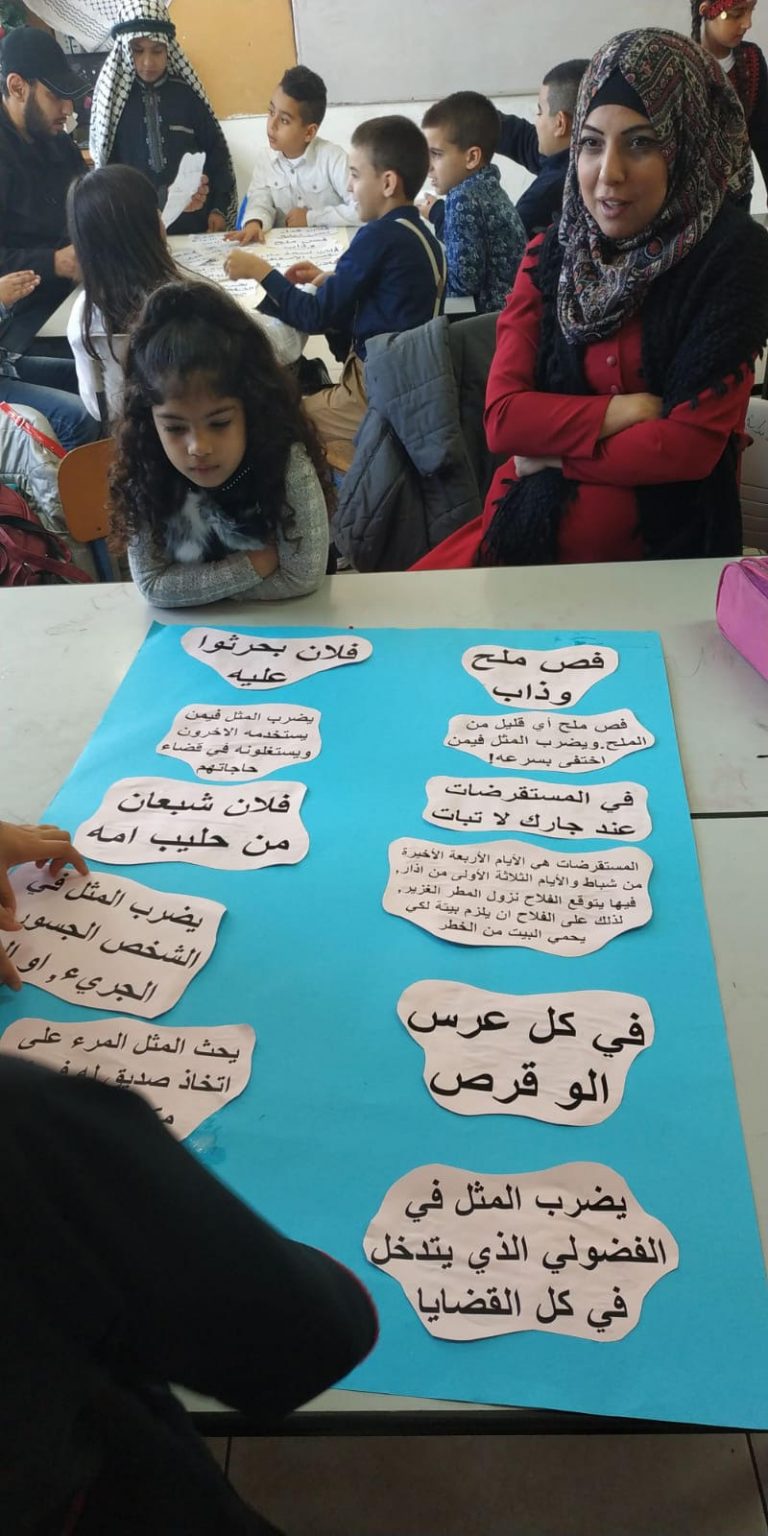 فص ملح
وذاب
فص ملح أي قليل من
الملح.ويضرب المثل فيمن
اختفى بسرعه!
في المستقرضات
عند جارك لا تبات
المستقرضات هي الأيام الأربعة الأخيرة
من شباط والأيام الثلاثة الأولى من اذار,
فيها يتوقع الفلاح نزول المطر الغزير,
لذلك على الفلاح ان يلزم بيتة لكي
يحمي البيت من الخطر
في كل عرس
الو قرص
يضرب المثل في
الفضولي الذي يتدخل
في كل القضايا
فلان بحرثوا
عليه
يضرب المثل فيمن
يستخدمه الاخرون
ويستغلونه في قضاء
حاجاتهم
فلان شبعان
من حليب امه
يضرب المثل في
الشخص الجسور
الجريء ,او
يحث المثل المرء على
اتخاذ صديق له